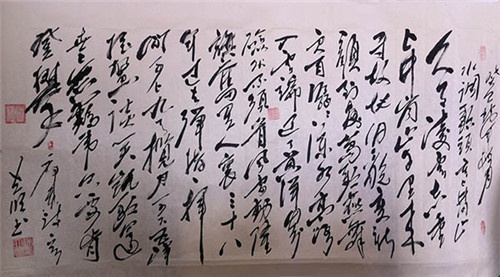 水调歌头重上井冈山
久有凌云志重
上井冈山千里来
寻故地旧貌变新
颜到处莺歌燕舞
更有潺潺流水高路
入云端过了黄洋界
险处不须看风雷动旌
旗奋是人寰三十八
年过去弹指一挥
间可上九天揽月可下五洋
捉鳖谈笑凯歌还
世上无难事只要肯
登攀